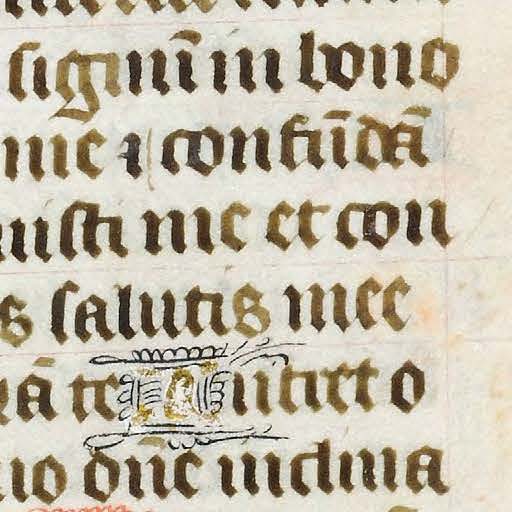 signū in bono
me ⁊ confūdā
uisti me et con
s salutis mee
rā te Uitiet o
io dn̄e inclina